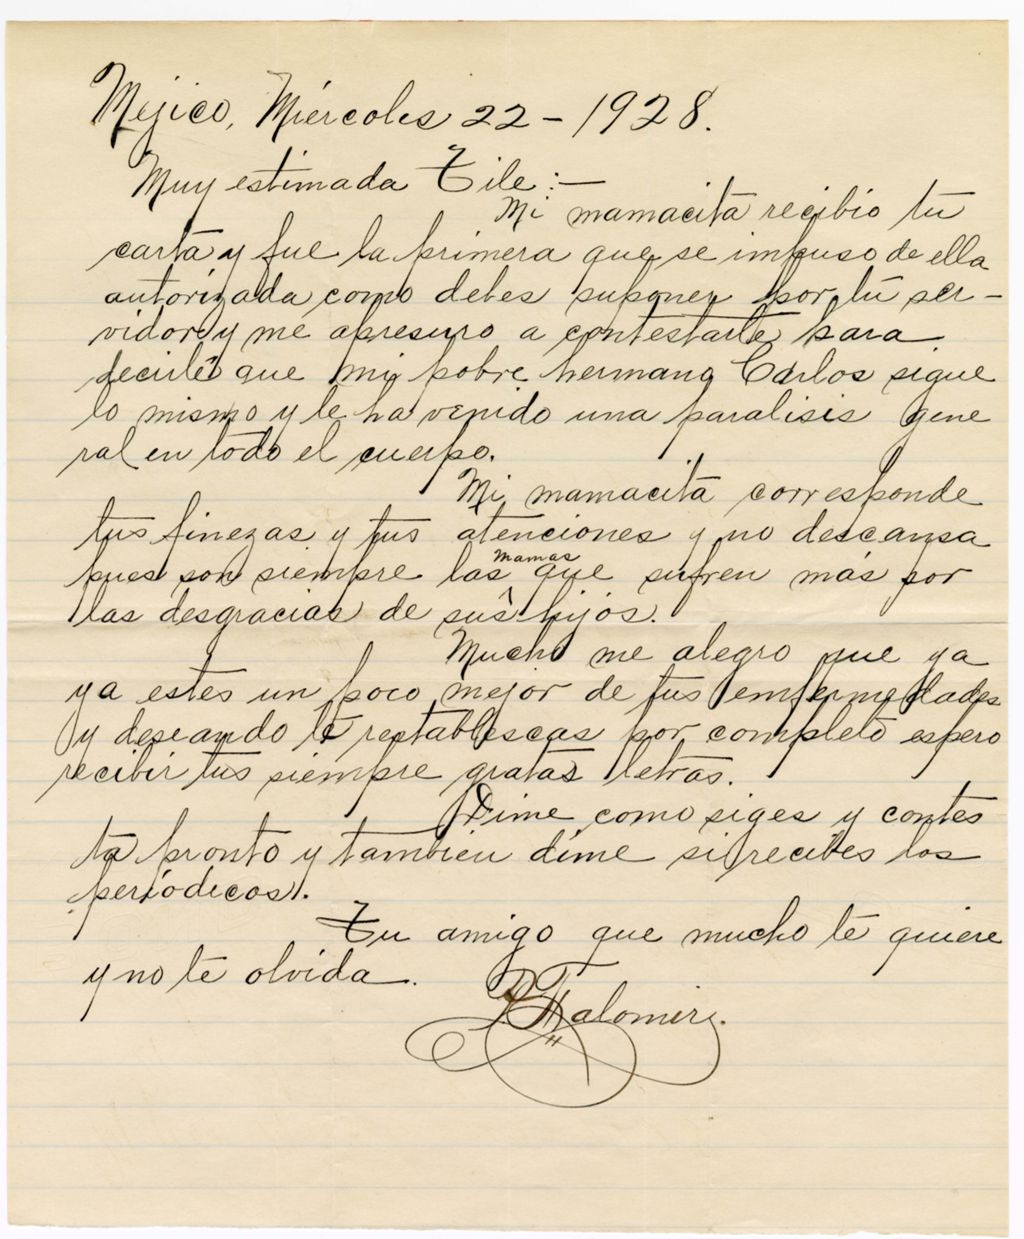 Méjico, Miércoles 22 - 1928.
Muy estimada Tile:—
Mi mamacita recibio tu
carta y fue la primera que se impuso de ella
autorizada como debes suponer por tú ser-
vidor y me apresuro a contestarle para
decirle que mi pobre hermano Carlos sigue
lo mismo y le ha venido una paralisis gene
ral en todo el cuerpo.
Mi mamacita corresponde
tus finezas y tus atenciones y no descansa
pues son siempre las mamas que sufren más por
las desgracias de sus hijos.
Mucho me alegro que ya
ya estes un poco mejor de tus enfermedades
y deseando te restablescas por completo espero
recibir tus siempre gratas letras.
Dime como siges y contes
ta pronto y tambien díme si recibes los
periódicos.
Tu amigo que mucho te quiere
y no te olvida.